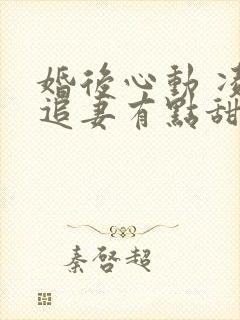 婚後心動
追妻有點甜
秦啓超